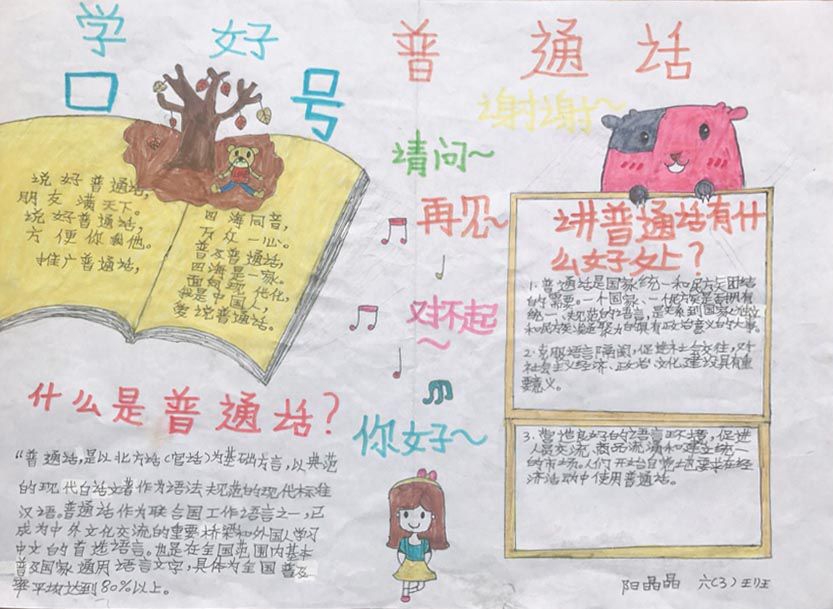 学好普通话
口号
说好普通话,
朋友满天下。
说好普通话,
方便你我他。
推广普通话,
四海同音,
万众一心。
普及普通话,
四海是一家。
面向现代化,
我是中国人,
爱说普通话。
谢谢～
请问～
再见～
对不起
～
你好～
什么是普通话?
“普通话,是以北方话(官话)为基础方言,以典范
的现代白话文著作为语法规范的现代标准
汉语。普通话作为联合国工作语言之一,已
成为中外文化交流的重要桥梁和外国人学习
中文的首选语言。也是在全国范围内基本
普及国家通用语言文字,具体为全国普及
率平均达到80%以上。
讲普通话有什
么好处?
1.普通话是国家统一和民族团结
的需要。一个国家、一个民族是否拥有
统一、规范的语言,是关系到国家
和民族凝聚力的具有政治意义的大事。
2.克服语言隔阂,促进社会交往,对
社会主义经济、政治、文化建设具有重
要意义。
3.营造良好的语言环境,促进
人员交流,商品流通和建立统一
的市场。人们开始自觉地要求在经
济活动中使用普通话。
阳晶晶 六(3)班